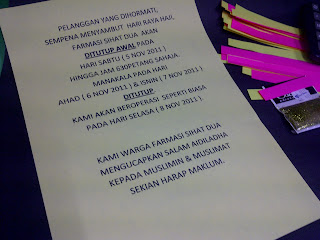 PELANGGAN YANG DIHORMATI,
SEMPENA MENYAMBUT HARI RAYA HAJI,
FARMASI SIHAT DUA AKAN
DITUTUP AWAL PADA
HARI SABTU ( 5 NOV 2011 )
HINGGA JAM 6.30PETANG SAHAJA.
MANAKALA PADA HARI
AHAD ( 6 NOV 2011 ) & ISNIN ( 7 NOV 2011 )
DITUTUP.
KAMI AKAN BEROPERASI SEPERTI BIASA
PADA HARI SELASA ( 8 NOV 2011 ).
KAMI WARGA FARMASI SIHAT DUA
MENGUCAPKAN SALAM AIDILADHA
KEPADA MUSLIMIN & MUSLIMAT
SEKIAN HARAP MAKLUM.